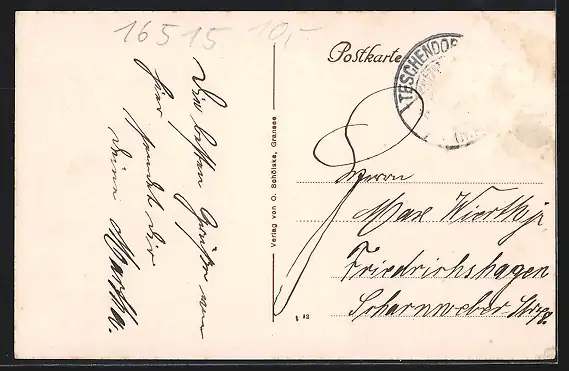 16515 10,-
Postkarte
TESCHENDORF
Die besten
hier sendet dir
deine Martha.
Verlag von O. Schölske, Gransee
Herrn
Max
Friedrichshagen
Scharnweber-Str.